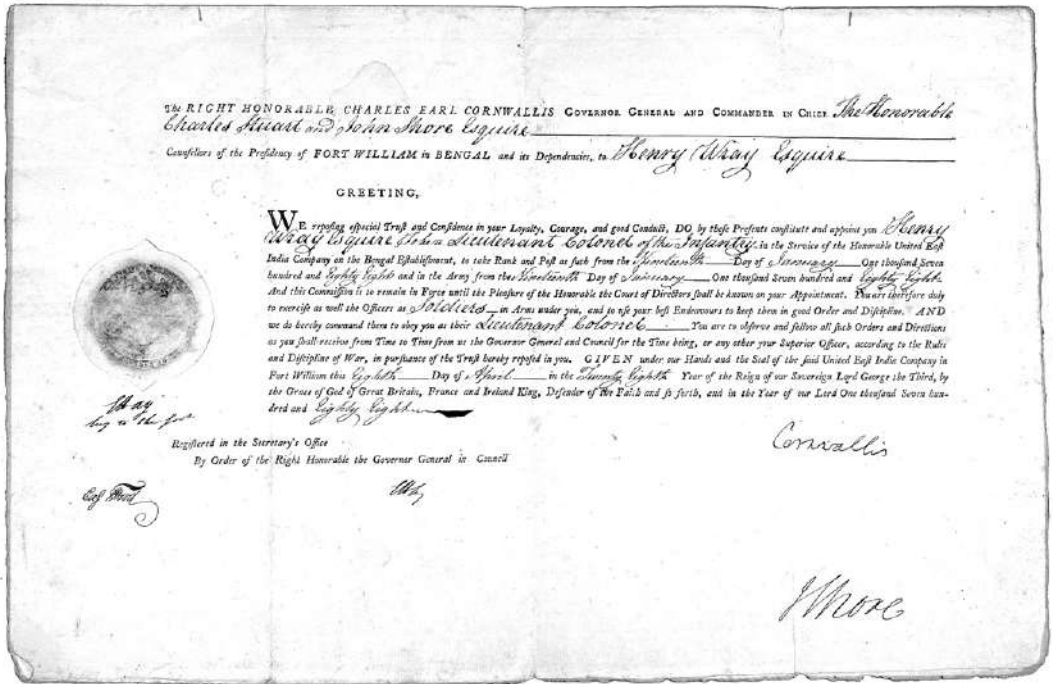 The RIGHT HONORABLE CHARLES EARL CORNWALLIS GOVERNOR GENERAL AND COMMANDER IN CHIEF The Honorable
Charles Stuart and John Shore Esquire
Counsellors of the Presidency of FORT WILLIAM in BENGAL and its Dependencies, to Henry Wray Esquire
GREETING,
WE reposing especial Trust and Confidence in your Loyalty, Courage, and good Conduct, DO by these Presents constitute and appoint you Henry
Wray Esquire to be a Lieutenant Colonel of the Infantry in the Service of the Honorable United East
India Company on the Bengal Establishment, to take Rank and Post as such from the Nineteenth Day of January One thousand Seven
hundred and Eighty Eight and in the Army from the Nineteenth Day of January One thousand Seven hundred and Eighty Eight.
And this Commission is to remain in Force until the Pleasure of the Honorable the Court of Directors shall be known on your Appointment. You are therefore duly
to exercise as well the Officers as Soldiers in Arms under you, and to use your best Endeavours to keep them in good Order and Discipline. AND
we do hereby command them to obey you as their Lieutenant Colonel You are to observe and follow all such Orders and Directions
as you shall receive from Time to Time from us the Governor General and Council for the Time being, or any other your Superior Officer, according to the Rules
and Discipline of War, in pursuance of the Trust hereby reposed in you. GIVEN under our Hands and the Seal of the said United East India Company in
Fort William this Eighth Day of April in the Twenty Eighth Year of the Reign of our Sovereign Lord George the Third, by
the Grace of God of Great Britain, France and Ireland King, Defender of the Faith and so forth, and in the Year of our Lord One thousand Seven hun-
dred and Eighty Eight
EHay
Cornwallis
Registered in the Secretary's Office
By Order of the Right Honorable the Governor General in Council
EHay
JShore